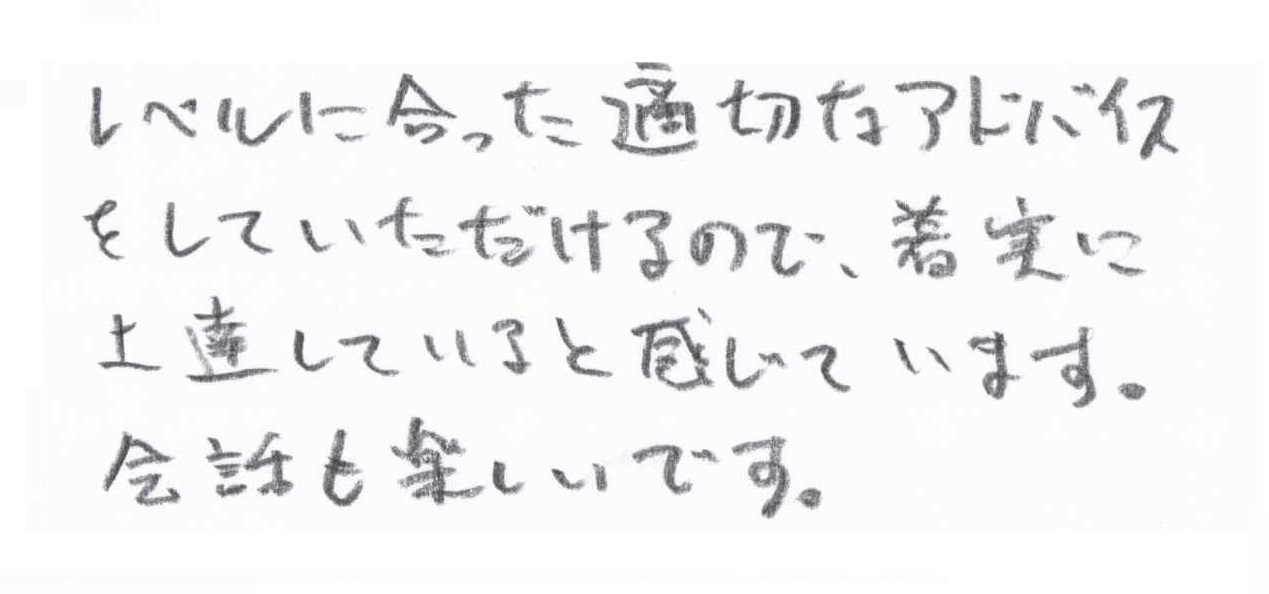 レベルに合った適切なアドバイス
をしていただけるので、着実に
上達していると感じています。
会話も楽しいです。